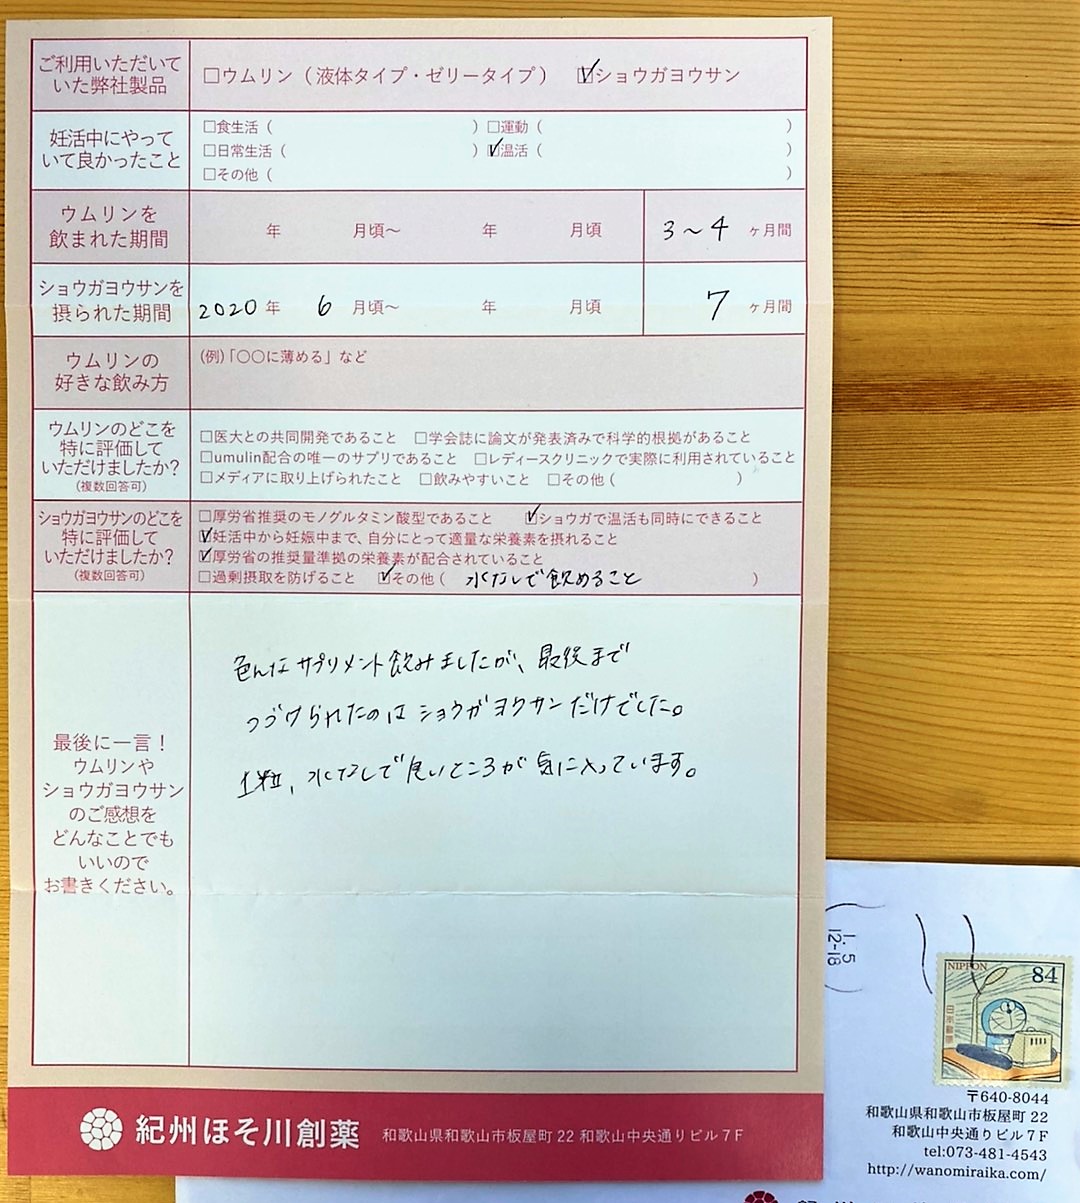 ご利用いただいて
いた弊社製品
□ウムリン（液体タイプ・ゼリータイプ） ☑ショウガヨウサン
妊活中にやって
いて良かったこと
□食生活（ ）□運動（ ）
□日常生活（ ）☑温活（ ）
□その他（ ）
ウムリンを
飲まれた期間
年 月頃～ 年 月頃 3～4 ヶ月間
ショウガヨウサンを
摂られた期間
2020年 6 月頃～ 年 月頃 7 ヶ月間
ウムリンの
好きな飲み方
(例)「〇〇に薄める」など
ウムリンのどこを
特に評価して
いただけましたか?
(複数回答可)
□医大との共同開発であること □学会誌に論文が発表済みで科学的根拠があること
□umulin配合の唯一のサプリであること □レディースクリニックで実際に利用されていること
□メディアに取り上げられたこと □飲みやすいこと □その他（ ）
ショウガヨウサンのどこを
特に評価して
いただけましたか?
(複数回答可)
□厚労省推奨のモノグルタミン酸型であること ☑ショウガで温活も同時にできること
☑妊活中から妊娠中まで、自分にとって適量な栄養素を摂れること
☑厚労省の推奨量準拠の栄養素が配合されていること
□過剰摂取を防げること ☑その他（ 水なしで飲めること ）
最後に一言！
ウムリンや
ショウガヨウサン
のご感想を
どんなことでも
いいので
お書きください。
色んなサプリメント飲みましたが、最後まで
つづけられたのはショウガヨウサンだけでした。
1粒、水なしで良いところが気に入っています。
紀州ほそ川創薬 和歌山県和歌山市板屋町 22 和歌山中央通りビル７F
1. 5
12-18
NIPPON 84
日本郵便
〒640-8044
和歌山県和歌山市板屋町 22
和歌山中央通りビル７F
tel:073-481-4543
http://wanomiraika.com/